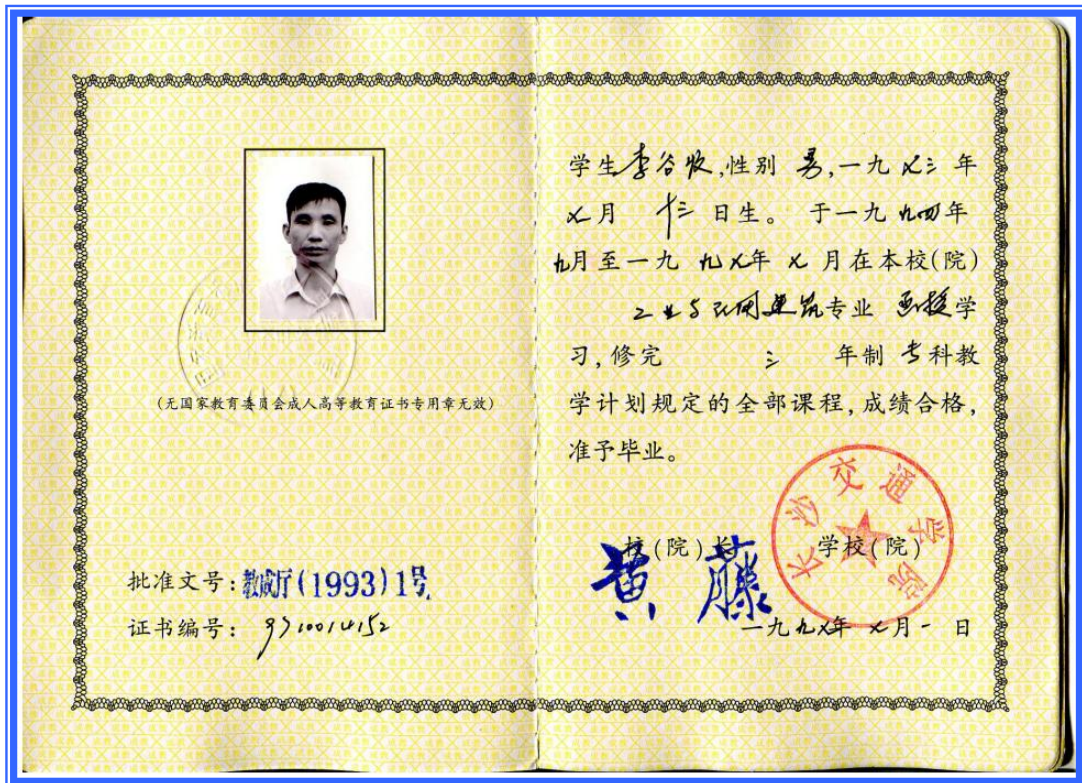 (无国家教育委员会成人高等教育证书专用章无效)
批准文号:教成厅(1993)1号
证书编号: 9710014152
学生李谷牧,性别 男,一九七三 年
七月 十三 日生。 于一九 九四年
九月至一九 九七年 七 月在本校(院)
工业与民用建筑专业 函授学
习,修完 三 年制 专科教
学计划规定的全部课程,成绩合格,
准予毕业。
校(院)长 学校(院)
黄藤
长沙交通学院
一九九七年 七月一 日